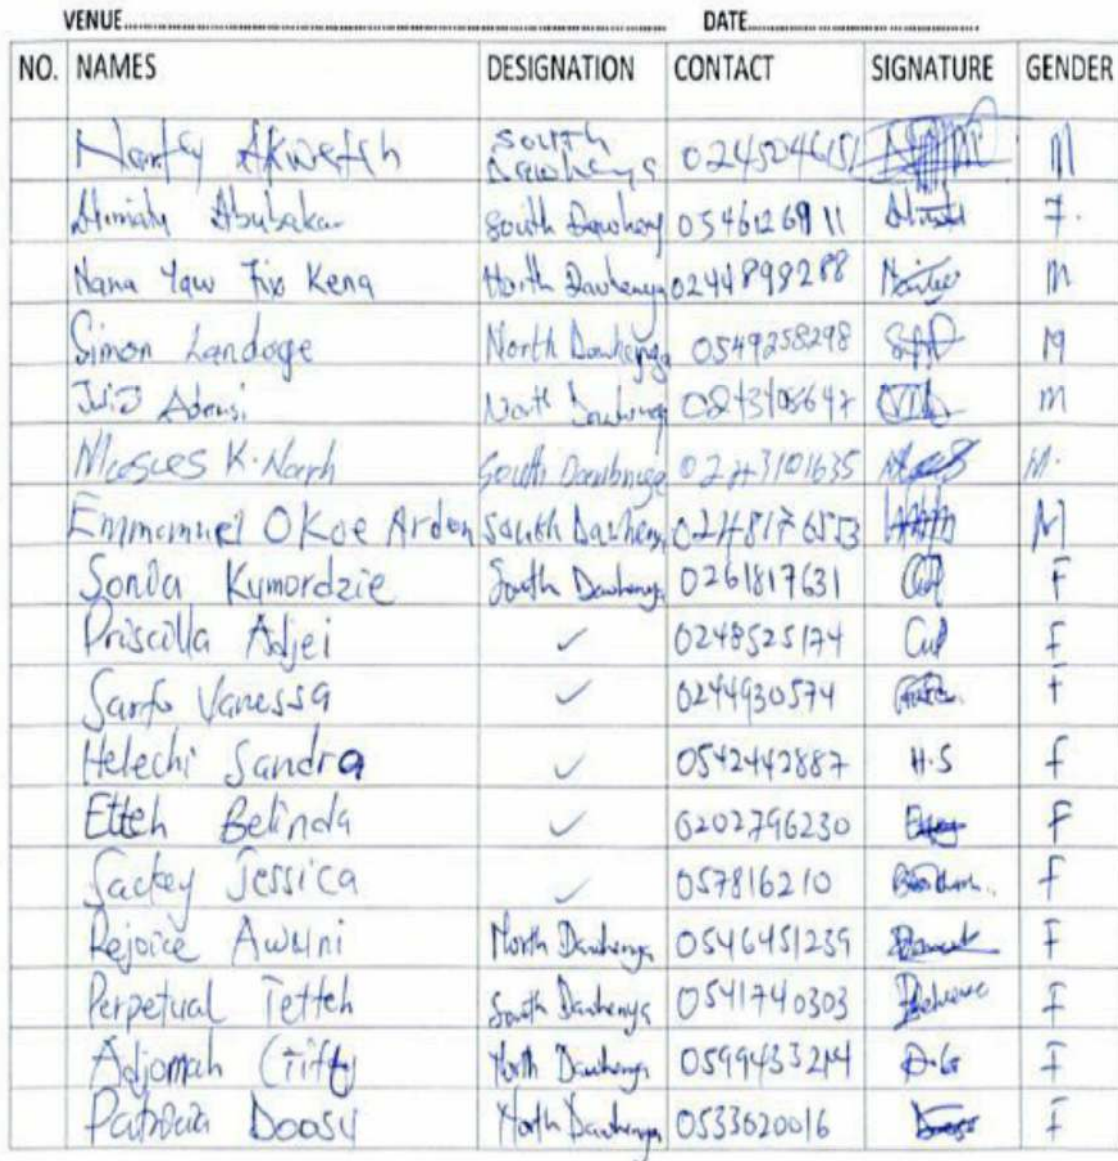 VENUE........ DATE........
NO. NAMES DESIGNATION CONTACT SIGNATURE GENDER
Akwetsh South Dawhenya M
Abubakar South Dawheny 0546126911 F.
Nana Yaw Fix Kena North Dawhenya 0244898288 M
Simon Landoge North Dawhenya 0549258298 M
Adonsi North Dawhenya M
K. South M.
Emmanuel Okoe Ardon South Dawhenya M
Sonia Kymordzie South Dawhenya 0261817631 F
Priscilla Adjei ✓ 0248525174 F
Sarfo Vanessa ✓ 0244930574 F
Helechi Sandra ✓ 0542442887 H.S F
Etteh Belinda ✓ 0202796230 F
Sackey Jessica ✓ 057816210 F
Rejoice Awuni North Dawhenya 0546451239 F
Perpetual Tetteh South Dawhenya 0541740303 F
Adjomah North Dawhenya F
Patricia Doosu North Dawhenya 0533620016 F